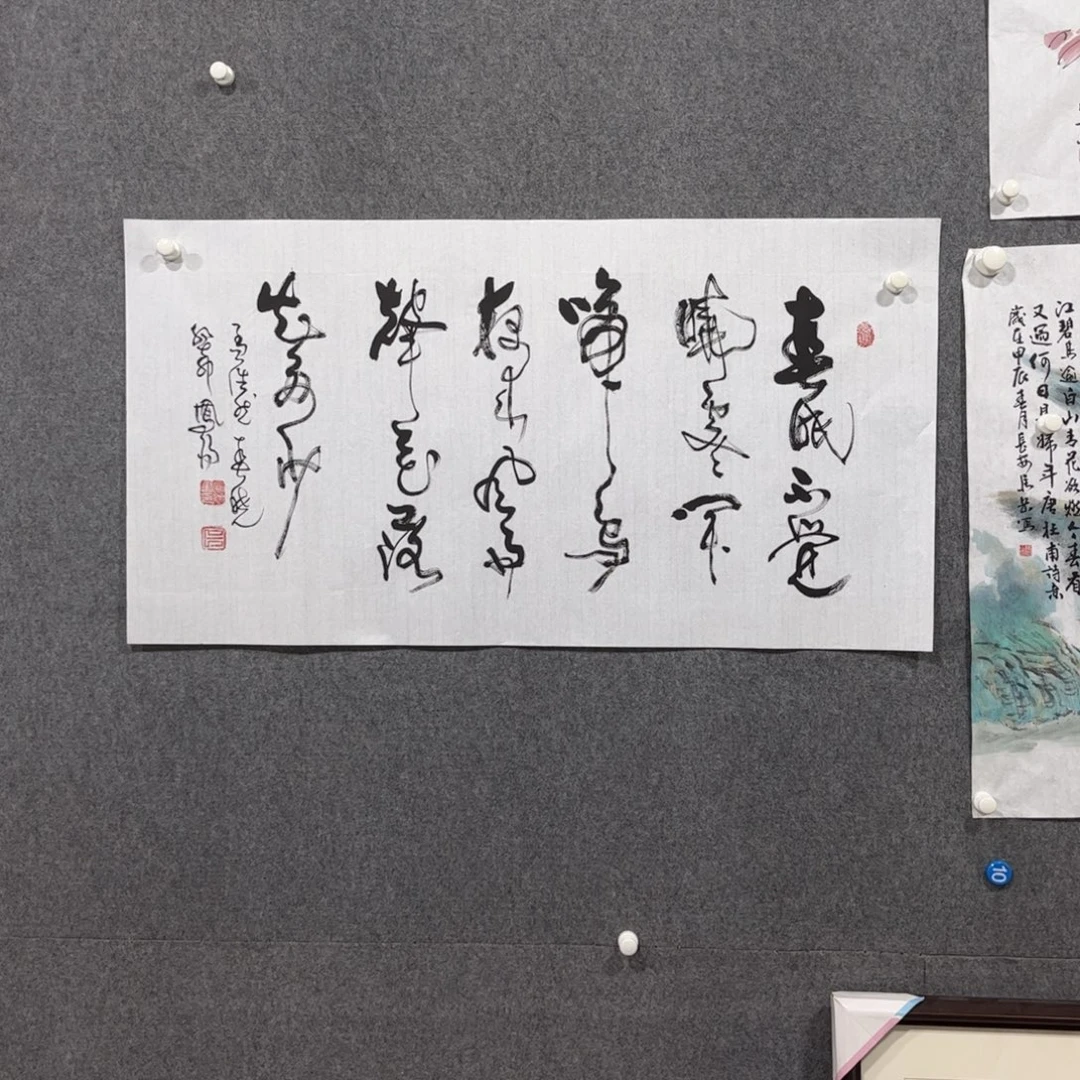 春眠不覺
曉處々聞
啼鳥
夜來風雨
聲花落
知多少
孟浩然春曉
江碧鳥逾白山青花欲燃今春看
又過何日是歸年唐杜甫詩意
歲在甲辰春月長安
10